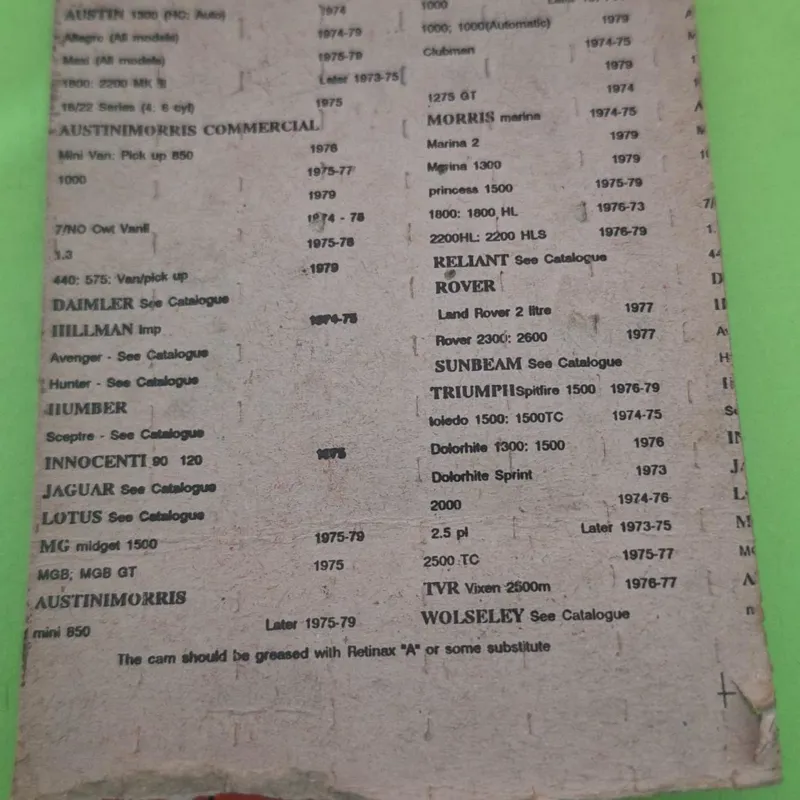 AUSTIN 1300 (HC: Auto) 1974
Allegro (All models) 1974-79
Maxi (All models) 1975-79
1800: 2200 MK Later 1973-75
18/22 Series (4. 6 cyl) 1975
AUSTINIMORRIS COMMERCIAL
Mini Van: Pick up 850 1976
1000 1975-77
1979
7/NO Cwt Vanll 1974 - 78
1.3 1975-78
440: 575: Van/pick up 1979
DAIMLER See Catalogue
HILLMAN Imp 1974-75
Avenger - See Catalogue
Hunter - See Catalogue
HUMBER
Sceptre - See Catalogue
INNOCENTI 90 120 1975
JAGUAR See Catalogue
LOTUS See Catalogue
MG midget 1500 1975-79
MGB; MGB GT 1975
AUSTINIMORRIS
mini 850 Later 1975-79
1000
1000; 1000(Automatic) 1979
Clubman 1974-75
1979
1275 GT 1974
MORRIS marina 1974-75
Marina 2 1979
Marina 1300 1979
princess 1500 1975-79
1800: 1800 HL 1976-73
2200HL: 2200 HLS 1976-79
RELIANT See Catalogue
ROVER
Land Rover 2 litre 1977
Rover 2300: 2600 1977
SUNBEAM See Catalogue
TRIUMPH Spitfire 1500 1976-79
toledo 1500: 1500TC 1974-75
Dolorhite 1300: 1500 1976
Dolorhite Sprint 1973
2000 1974-76
2.5 pl Later 1973-75
2500 TC 1975-77
TVR Vixen 2500m 1976-77
WOLSELEY See Catalogue
The cam should be greased with Retinax "A" or some substitute